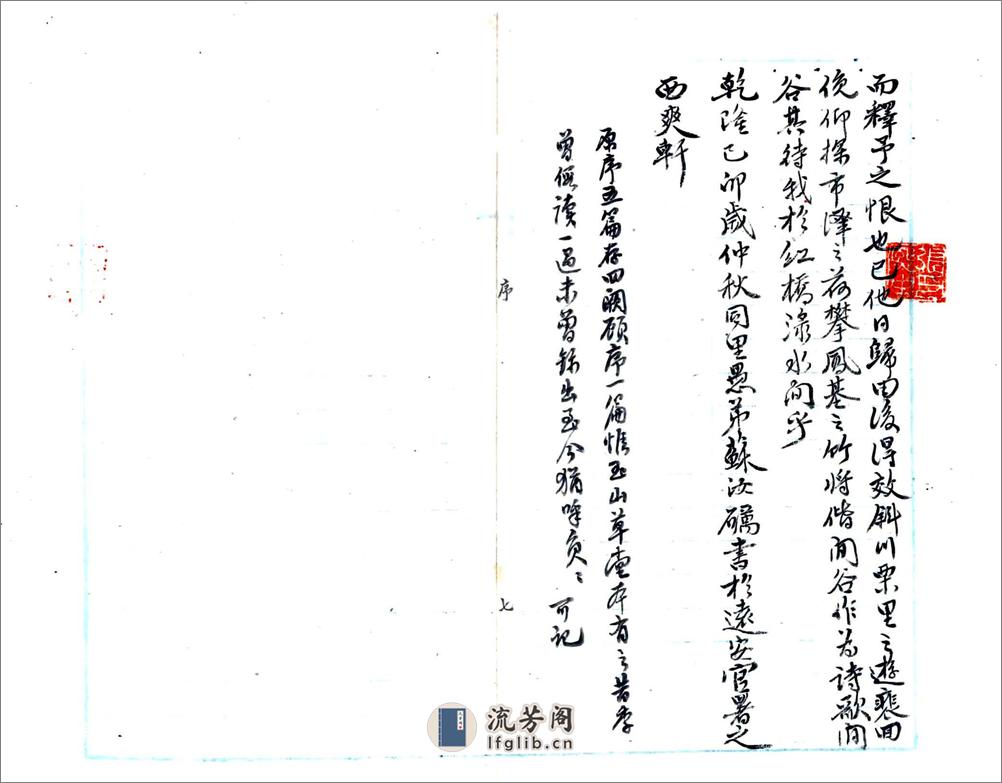 而釋予之恨也已他日歸田後得效斜川栗里之遊裴回
俛仰探市澤之荷攀鳳基之竹將偕閒谷作為詩歌閒
谷其待我於紅橋淥水間乎
乾隆己卯歲仲秋同里愚弟蘇汝礪書於遠安官署之
西爽軒
原序五篇存四闕顧序一篇惟玉山草堂本有之昔年
曾假讀一過未曾錄出至今猶呼負負可記
序
七
流芳阁
lfglib.cn